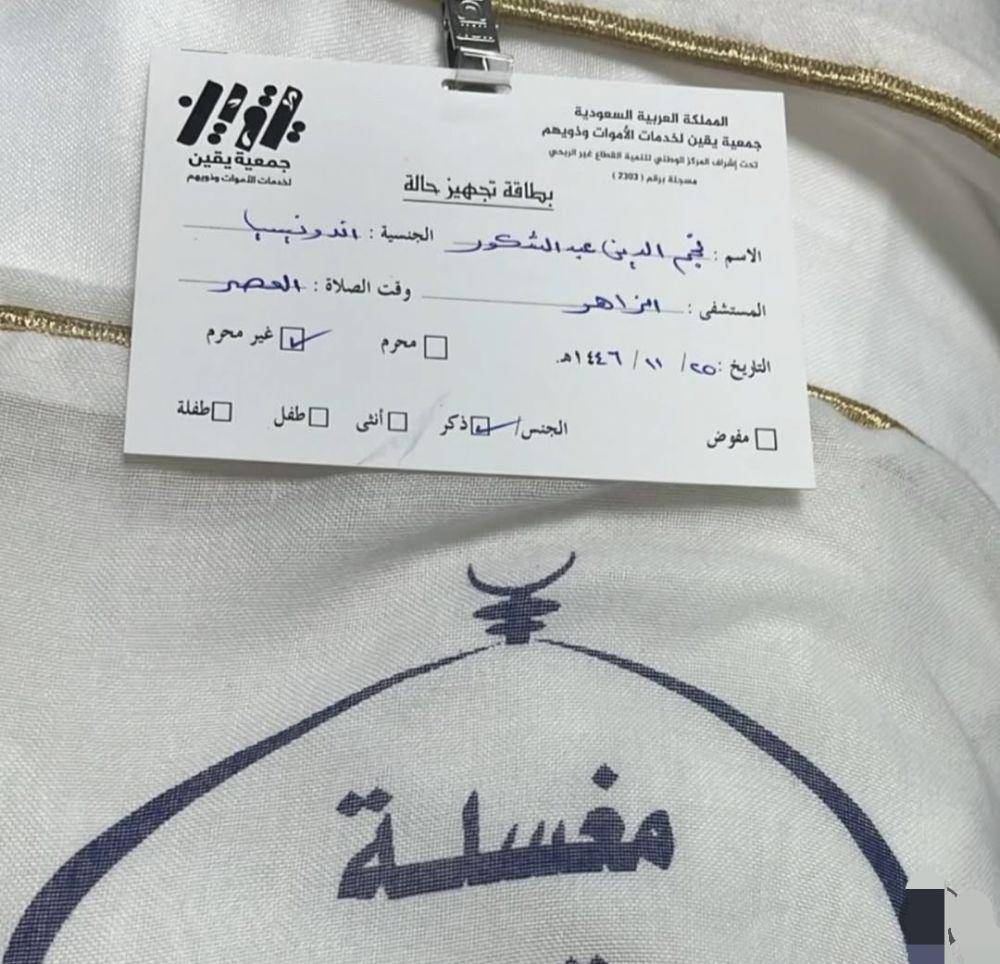 المملكة العربية السعودية
جمعية يقين لخدمات الأموات وذويهم
تحت إشراف المركز الوطني لتنمية القطاع غير الربحي
مسجلة برقم ( 2303 )
يقين
جمعية يقين
لخدمات الأموات وذويهم
بطاقة تجهيز حالة
الاسم : نجم الدين عبد الشكور الجنسية : اندونيسيا
المستشفى : الزاهر وقت الصلاة : العصر
التاريخ : ٢٥ / ١١ / ١٤٤٦هـ. محرم غير محرم
مفوض الجنس/ ذكر أنثى طفل طفلة
مغسلة